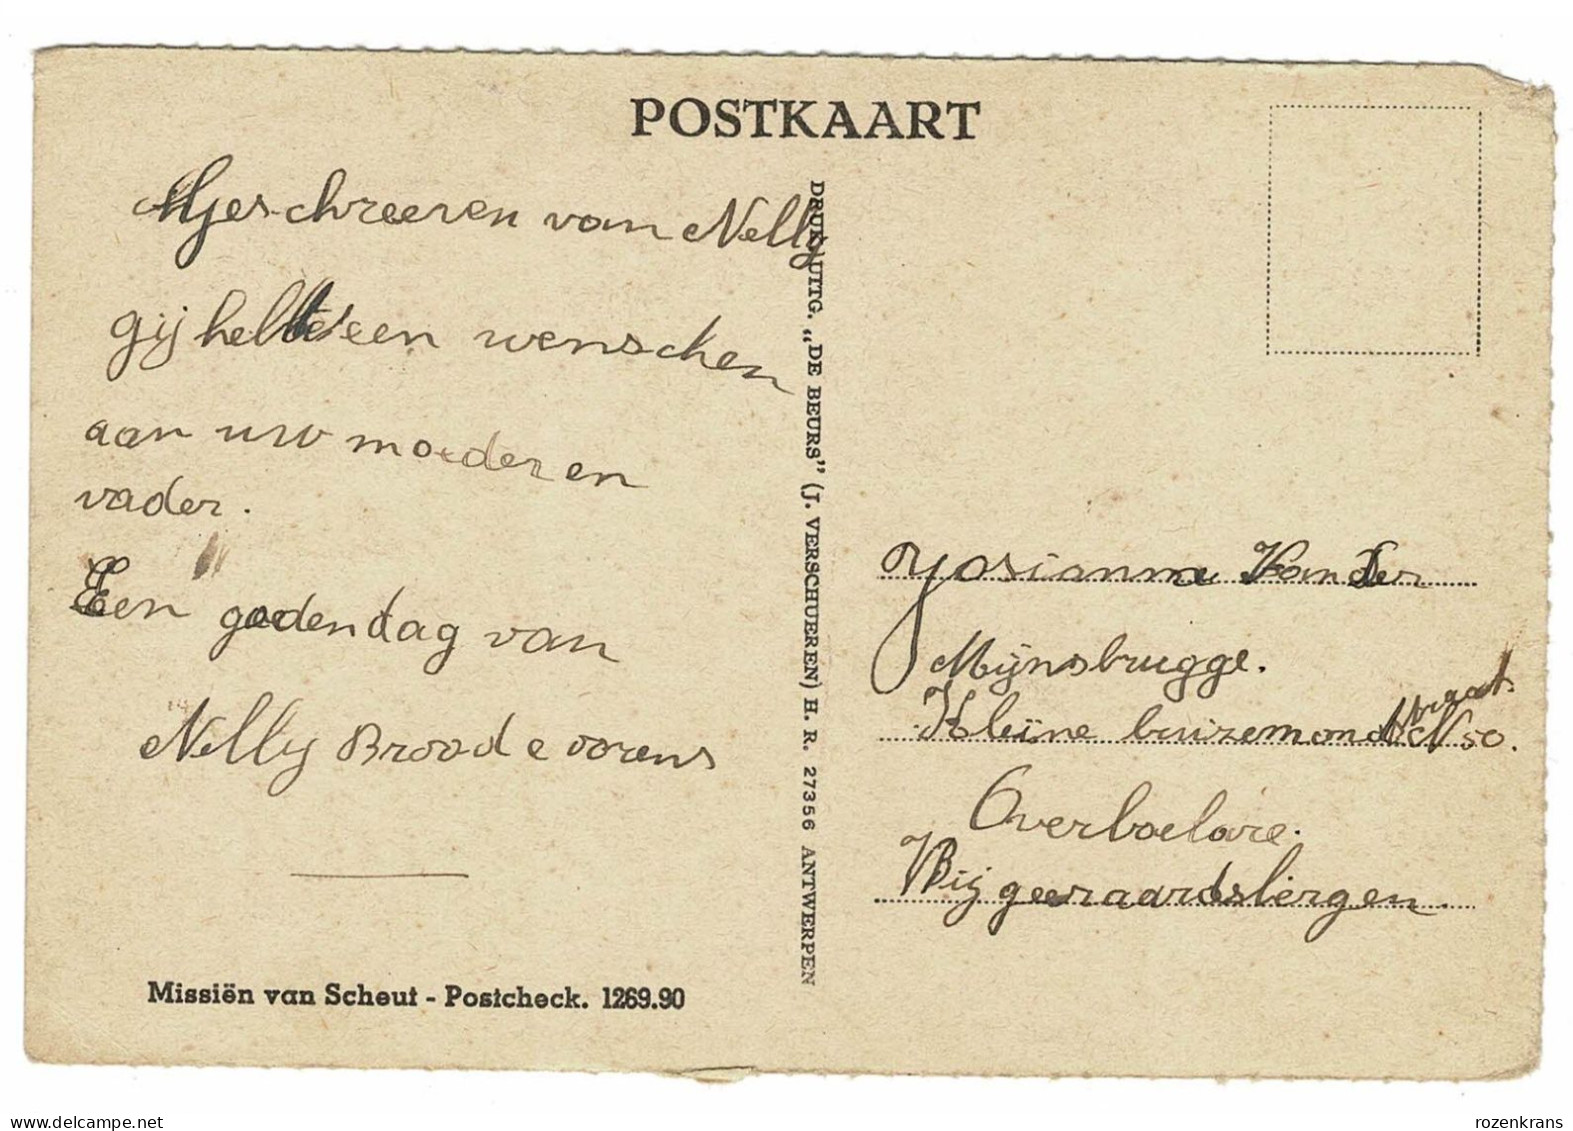 POSTKAART
Geschreeven van Nelly
gij hebt een wenschen
aan uw moeder en
vader.
Een goedendag van
Nelly Broodcoorens
Missiën van Scheut - Postcheck. 1269.90
DRUK. UITG. „DE BEURS” (J. VERSCHUEREN) H. R. 27356 ANTWERPEN
Josianne Vander
Mijnsbrugge.
Kleine buizemondstraat N 50.
Overboelare.
Bij geeraardsbergen.
delcampe.net
rozenkrans